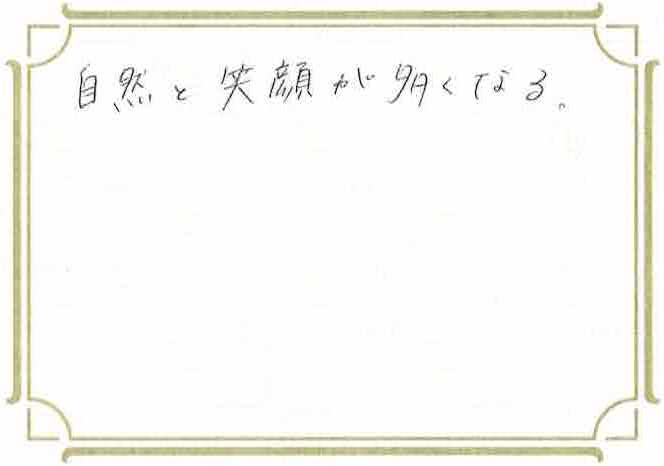 自然と笑顔が多くなる。